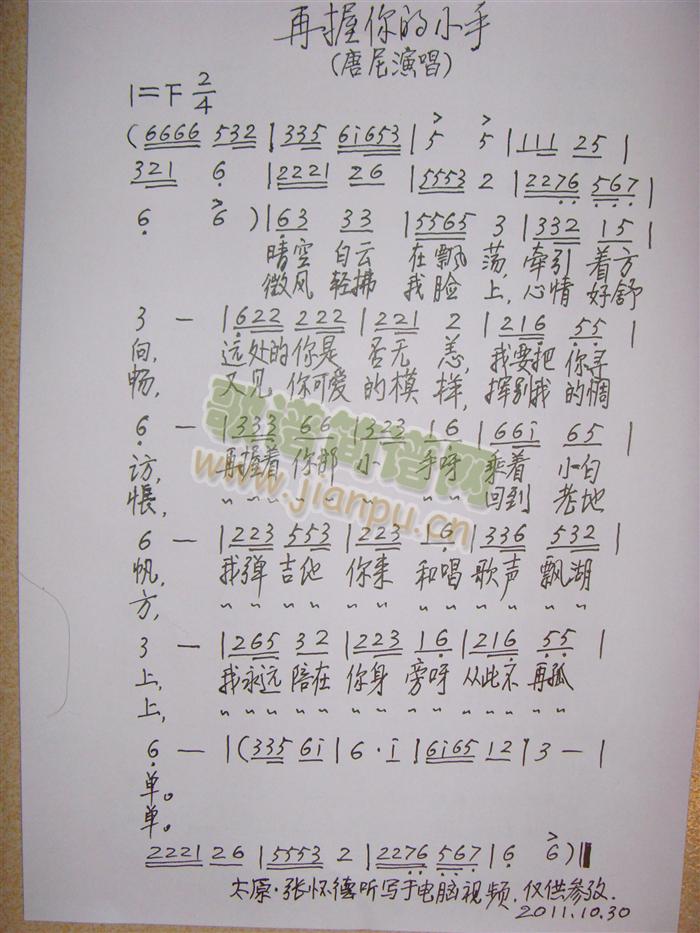 再握你的小手
(唐尼演唱)
1=下 2/4
(6666 532 | 335 6i653 | 5 5 | 111 25 |
321 6 | 2221 26 | 5553 2 | 2276 567 |
6 6 ) | 63 33 | 5565 3 | 332 15 |
晴空 白云 在飘 荡, 牵引 着方
微风 轻拂 我脸 上, 心情 好舒
3 — | 622 222 | 221 2 | 216 55 |
向, 远处的你是 否无 恙, 我要把 你寻
畅, 又见 你可爱 的模 样, 挥别我 的惆
6 — | 333 66 | 323 16 | 66i 65 |
访, 再握着 你那 小 手呀 乘着 小白
怅, " " " " " " 回到 老地
6 — | 223 553 | 223 16 | 336 532 |
帆, 我弹 吉他 你来 和唱 歌声 飘湖
方, " " " " " " " "
3 — | 265 32 | 223 16 | 216 55 |
上, 我永远 陪在 你身 旁呀 从此不 再孤
上, " " " " " " " "
6 — | (335 6i | 6 · i | 6i65 12 | 3 — |
单。
单。
2221 26 | 5553 2 | 2276 567 | 6 6 )‖
太原·张怀德听写于电脑视频.仅供参考.
2011.10.30
歌谱简谱网
www.jianpu.cn